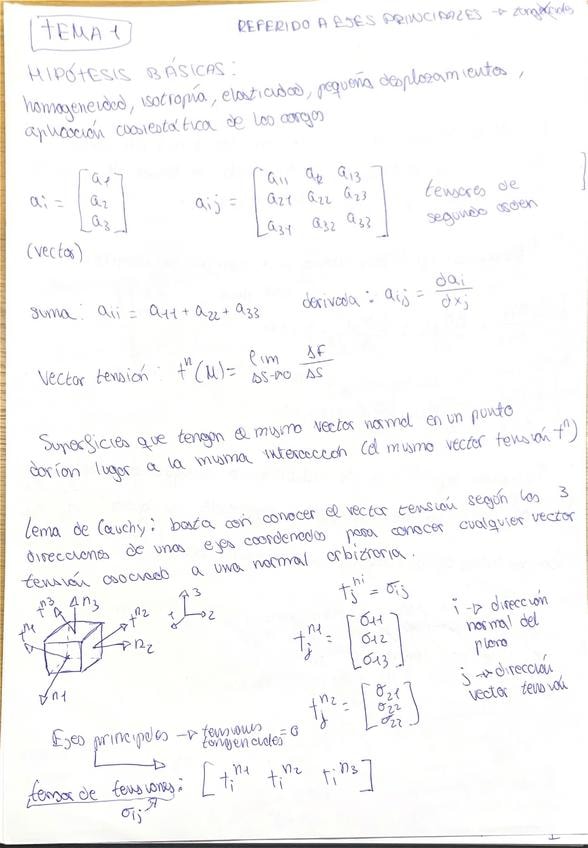 TEMA 1
REFERIDO A EJES PRINCIPALES →
HIPÓTESIS BÁSICAS:
homogeneidad, isotropía, elasticidad, pequeños desplazamientos,
aplicación cuasiestática de las cargas
ai = [a1 a2 a3] aij = [a11 a12 a13 a21 a22 a23 a31 a32 a33] tensores de
segundo orden
(vector)
suma: aii = a11 + a22 + a33 derivada: aij = dai/dxj
Vector tensión: t^n(M) = lim ΔS→0 ΔF/ΔS
Superficies que tengan el mismo vector normal en un punto
darían lugar a la misma interacción (el mismo vector tensión t^n)
Lema de Cauchy: basta con conocer el vector tensión según las 3
direcciones de unos ejes coordenados para conocer cualquier vector
tensión asociado a una normal arbitraria.
t^n3 n3 t^n1 t^n2 n2 n1
3 1 2
tj^ni = σij
i → dirección
normal del
plano
tj^n1 = [σ11 σ12 σ13]
j → dirección
vector tensión
tj^n2 = [σ21 σ22 σ22]
Ejes principales → tensiones
tangenciales = 0
tensor de tensiones: [ti^n1 ti^n2 ti^n3]
σij